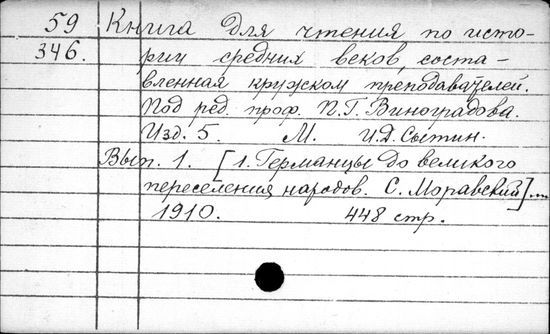 59 Книга для чтения по исто-
346. рии средних веков, соста-
вленная кружком преподавателей.
Под ред. проф. П.Г. Виноградова.
Изд. 5. М. И.Д. Сытин.
Вып. 1. [1. Германцы до великого
переселения народов. С. Моравский]...
1910. 448 стр.